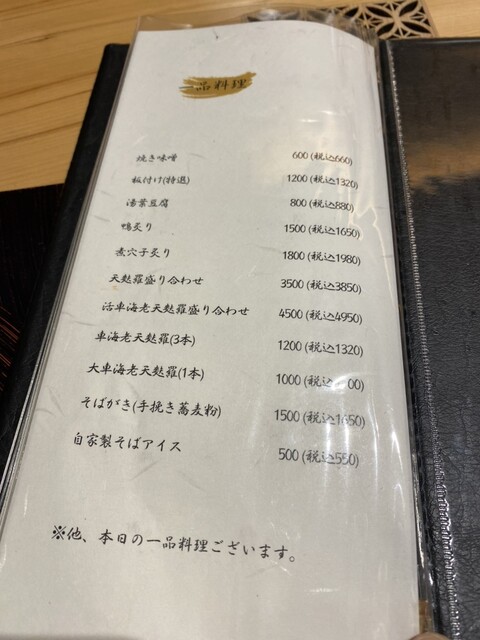 一品料理
焼き味噌 600 (税込660)
板付け(特選) 1200 (税込1320)
湯葉豆腐 800 (税込880)
鴨炙り 1500 (税込1650)
煮穴子炙り 1800 (税込1980)
天麩羅盛り合わせ 3500 (税込3850)
活車海老天麩羅盛り合わせ 4500 (税込4950)
車海老天麩羅(3本) 1200 (税込1320)
大車海老天麩羅(1本) 1000 (税込 00)
そばがき(手挽き蕎麦粉) 1500 (税込1650)
自家製そばアイス 500 (税込550)
※他、本日の一品料理ございます。